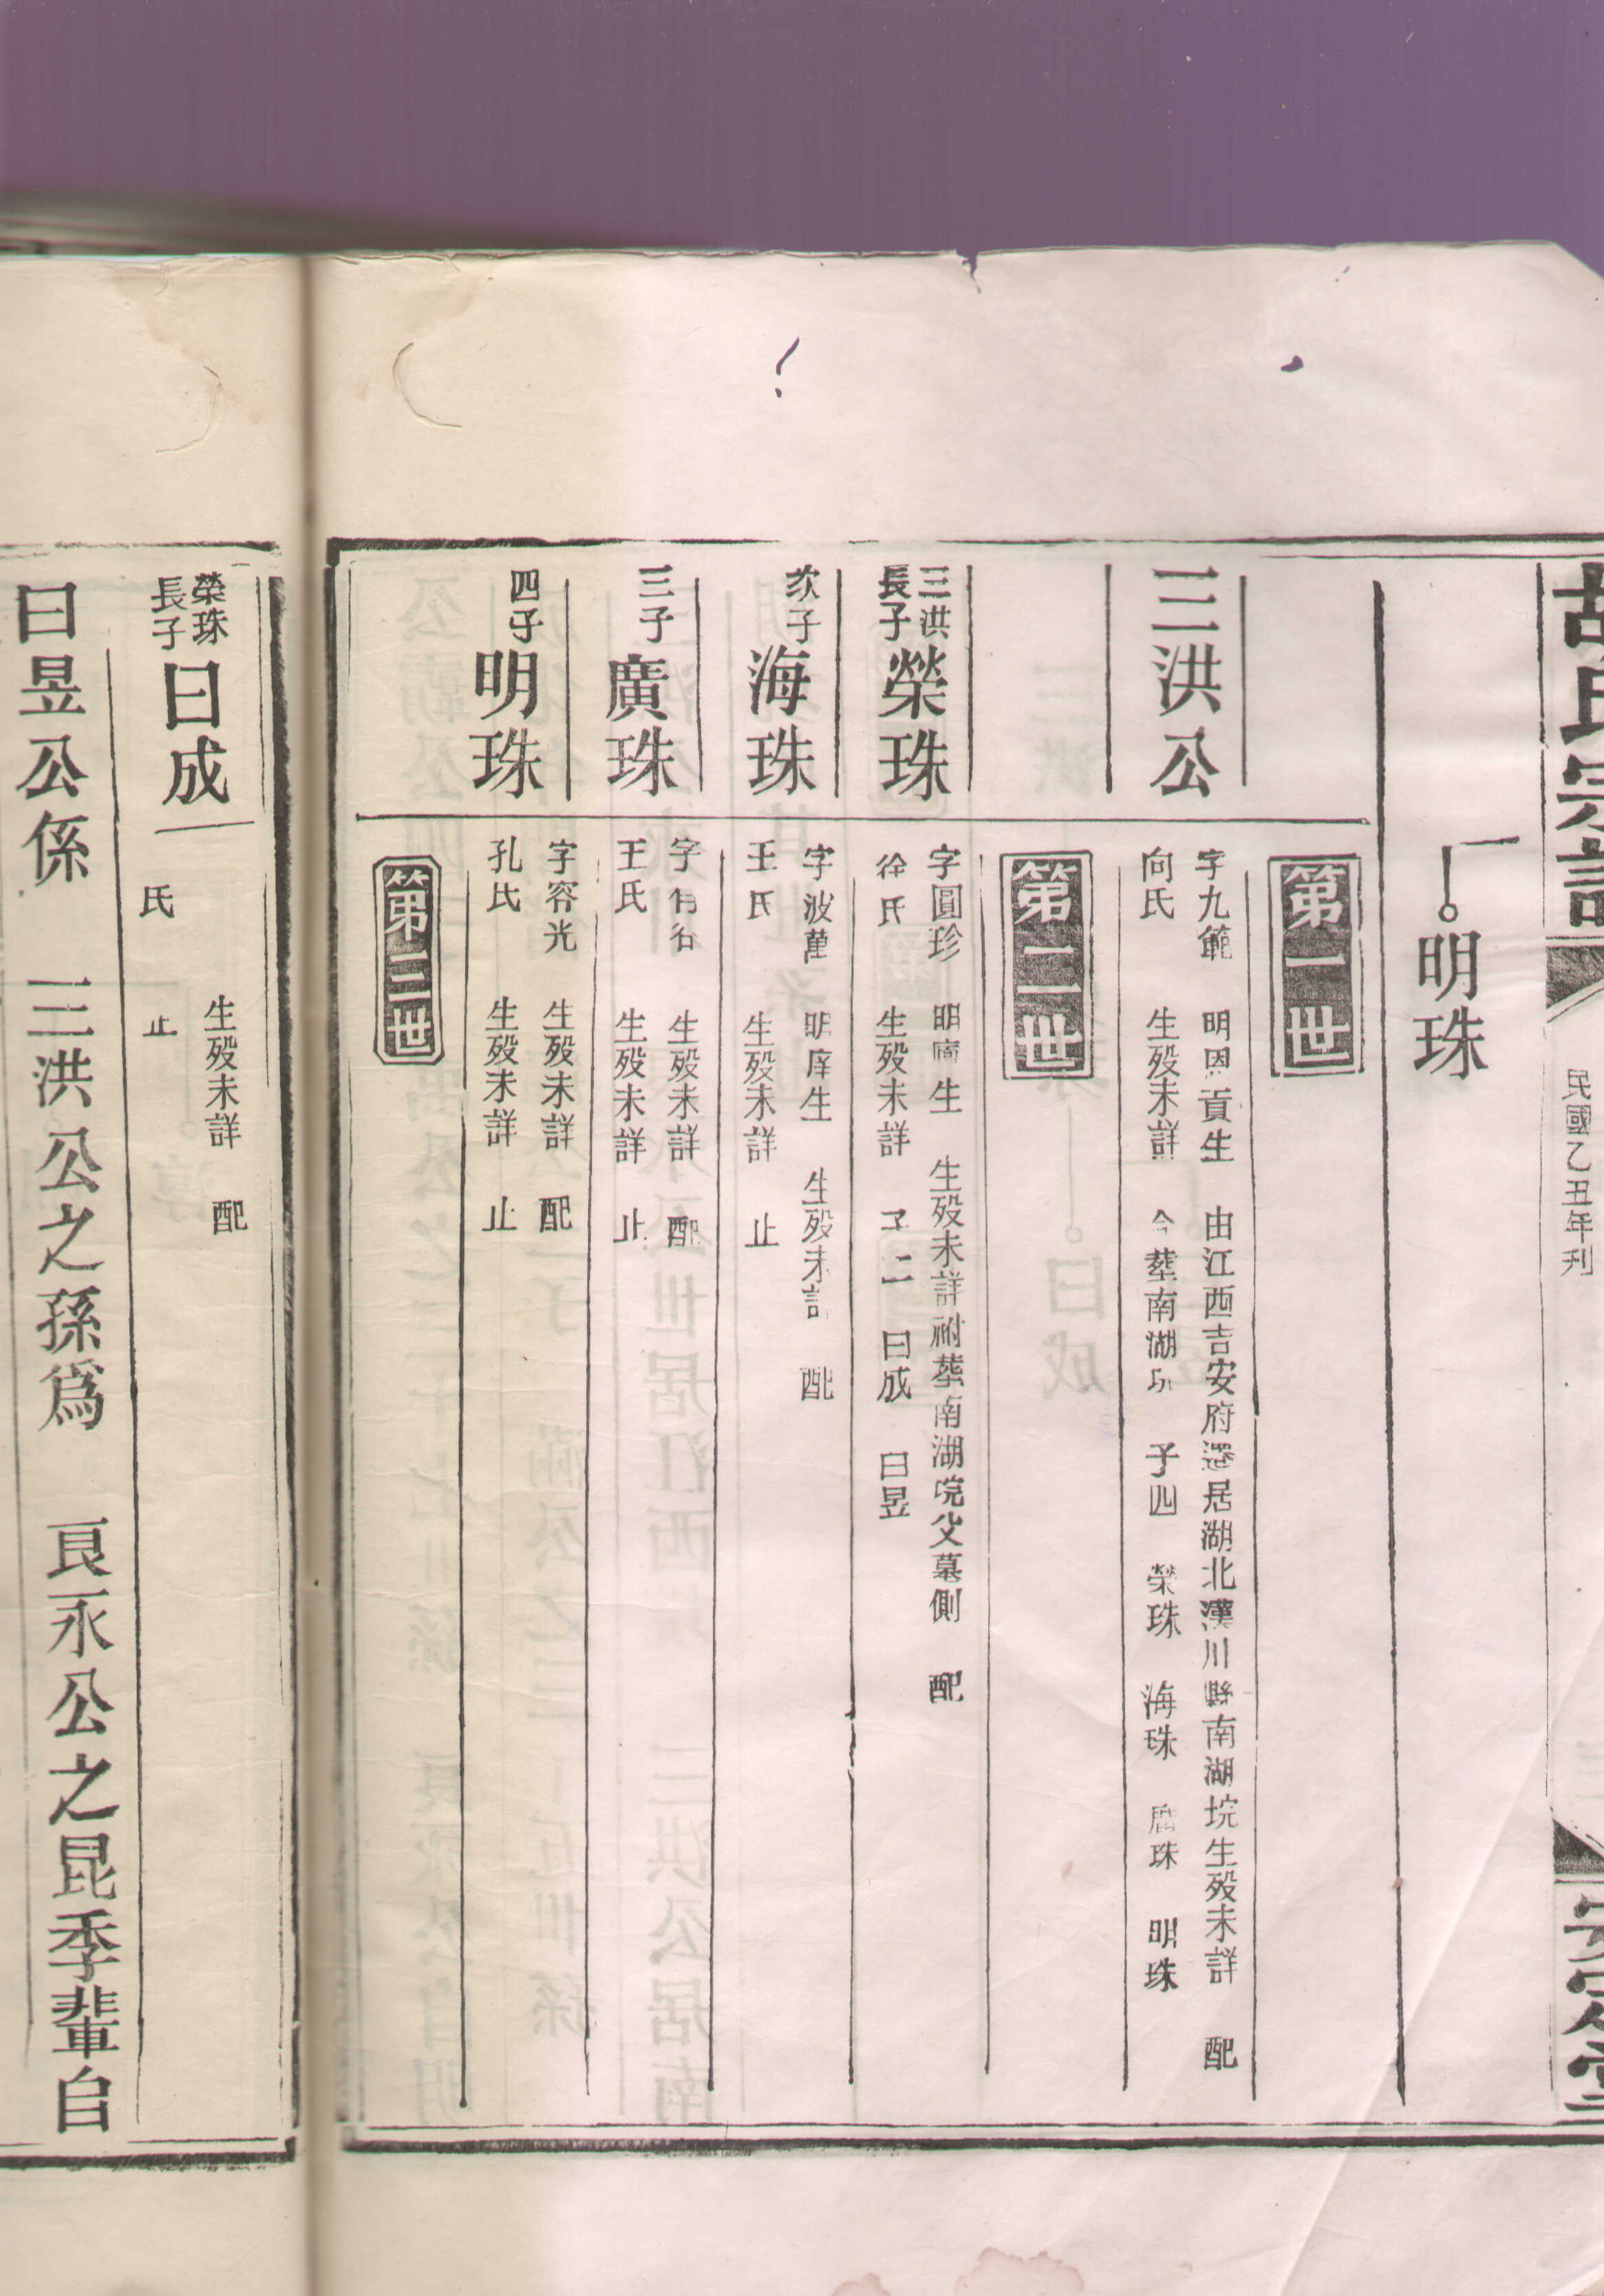 胡氏宗譜
民國乙丑年刋
安定堂
明珠
第一世
三洪公
字九範 明恩貢生 由江西吉安府遷居湖北漢川縣南湖垸生殁未詳 配
向氏 生殁未詳 合塟南湖 子四 榮珠 海珠 廣珠 明珠
第二世
三洪
長子
榮珠
字圓珍 明庠生 生殁未詳祔塟南湖垸父墓側 配
徐氏 生殁未詳 子二 曰成 曰昱
次子
海珠
字波萬 明庠生 生殁未詳 配
王氏 生殁未詳 止
三子
廣珠
字有名 生殁未詳 配
王氏 生殁未詳 止
四子
明珠
字容光 生殁未詳 配
孔氏 生殁未詳 止
第三世
榮珠
長子
曰成
生殁未詳 配
氏 止
曰昱公係 三洪公之孫爲 良永公之昆季輩自